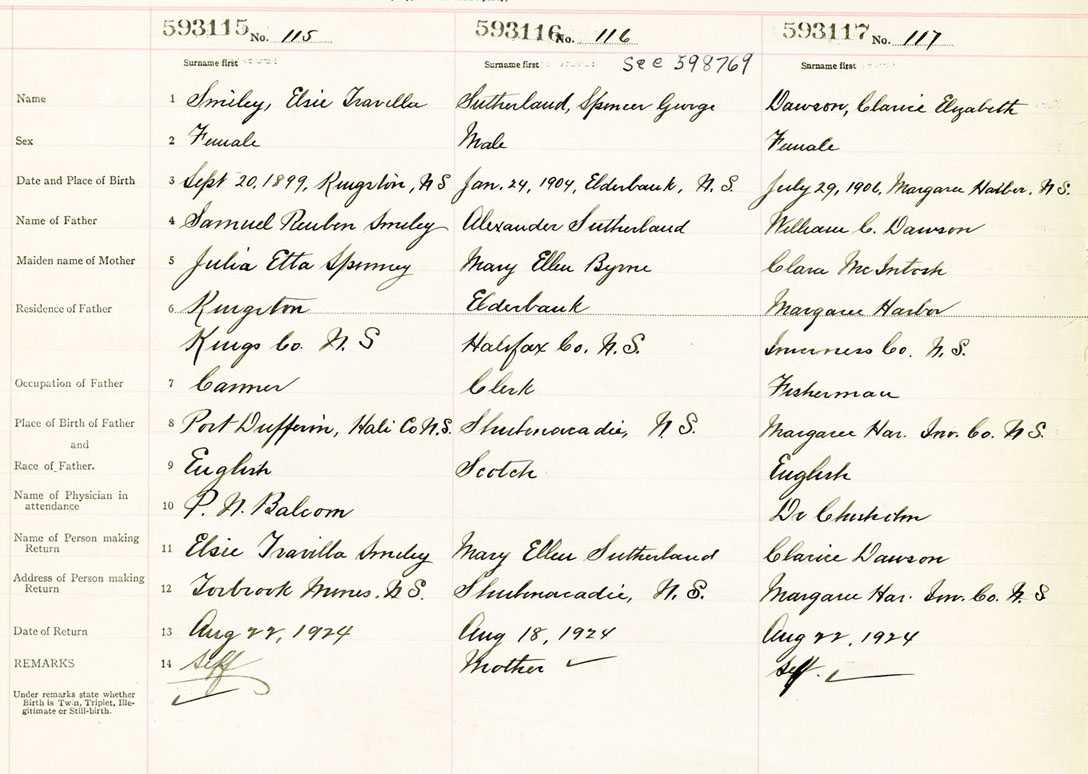 593115 No. 115 593116 No. 116 593117 No. 117
Surname first Surname first See 598769 Surname first
Name 1 Smiley, Elsie Travilla Sutherland, Spencer George Dawson, Clarice Elizabeth
Sex 2 Female Male Female
Date and Place of Birth 3 Sept 20, 1899, Kingston, N S Jan. 24, 1904, Elderbank, N. S. July 29, 1906, Margaree Harbor, N.S.
Name of Father 4 Samuel Reuben Smiley Alexander Sutherland William C. Dawson
Maiden name of Mother 5 Julia Etta Spinney Mary Ellen Byrne Clara McIntosh
Residence of Father 6 Kingston Elderbank Margaree Harbor
Kings Co. N. S Halifax Co. N. S. Inverness Co. N. S.
Occupation of Father 7 Canner Clerk Fisherman
Place of Birth of Father 8 Port Dufferin, Hali Co N.S. Shubenacadie, N. S. Margaree Har. Inv. Co. N S.
and
Race of Father. 9 English Scotch English
Name of Physician in
attendance 10 P. N. Balcom Dr Chisholm
Name of Person making
Return 11 Elsie Travilla Smiley Mary Ellen Sutherland Clarice Dawson
Address of Person making
Return 12 Torbrook Mines. N S. Shubenacadie, N. S. Margaree Har. Inv. Co. N. S
Date of Return 13 Aug 22, 1924 Aug 18, 1924 Aug 22, 1924
REMARKS 14 self Mother ✓ self. ✓
✓
Under remarks state whether
Birth is Twin, Triplet, Ille-
gitimate or Still-birth.